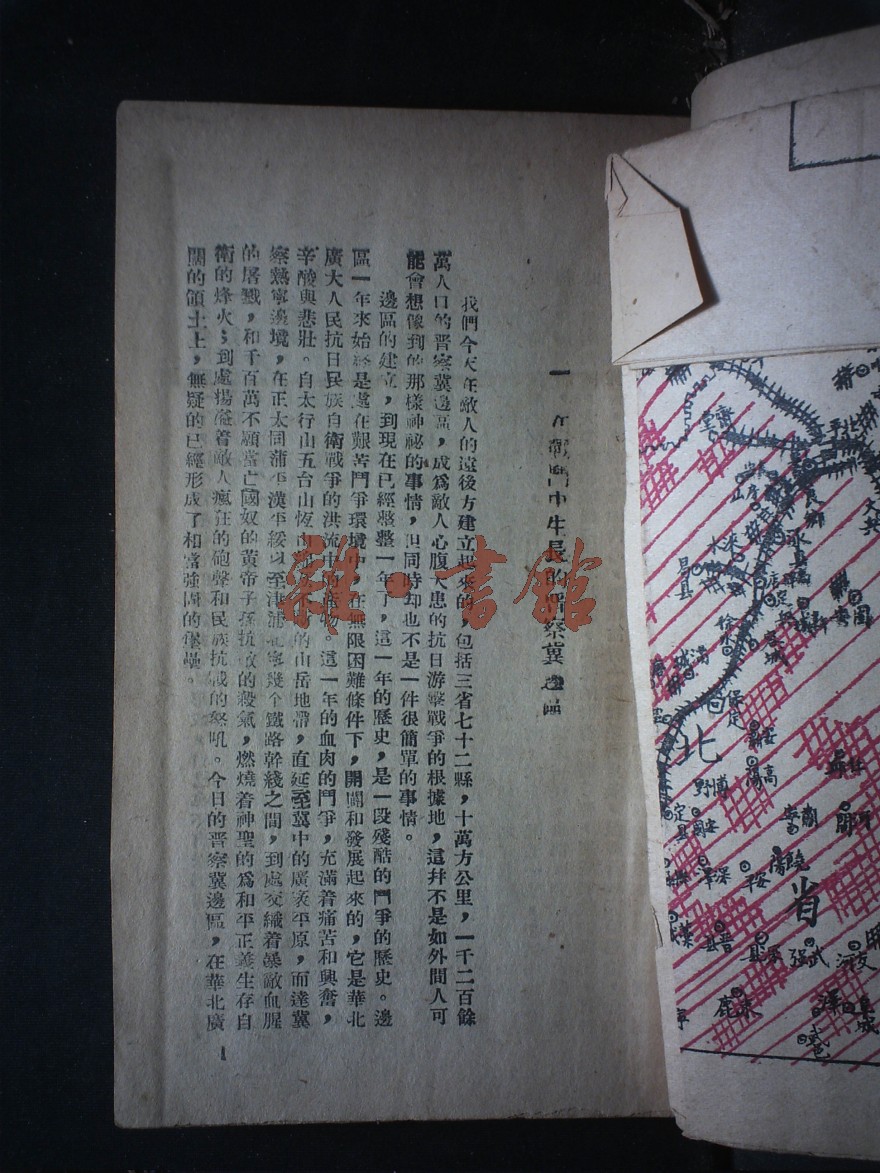 一 在戰鬥中生長的晉察冀邊區
我們今天在敵人的遠後方建立起來的,包括三省七十二縣,十萬方公里,一千二百餘
萬人口的晋察冀邊區,成爲敵人心腹大患的抗日游擊戰爭的根據地,這幷不是如外間人可
能會想像到的那樣神祕的事情,但同時却也不是一件很簡單的事情。
邊區的建立,到現在已經整整一年了,這一年的歷史,是一段殘酷的鬥爭的歷史。邊
區一年來始終是處在艱苦鬥爭環境中,在無限困難條件下,開闢和發展起來的,它是華北
廣大人民抗日民族自衛戰爭的洪流中的產物。這一年的血肉的鬥爭,充滿着痛苦和興奮,
辛酸與悲壯。自太行山五台山恆山的山岳地帶,直延至冀中的廣袤平原,而達冀
察熱寧邊境,在正太同蒲平漢平綏以至津浦北寧幾個鐵路幹綫之間,到處交織着暴敵血腥
的屠戮,和千百萬不願當亡國奴的黃帝子孫抗敵的殺氣,燃燒着神聖的爲和平正義生存自
衛的烽火,到處揚溢着敵人瘋狂的砲聲和民族抗戰的怒吼。今日的晋察冀邊區,在華北廣
闊的領土上,無疑的已經形成了相當強固的堡壘。
1
雜·書館
北
省
良鄉
昌縣
水
徐水
保定
容城
博野
定縣
安平
饒陽
晉縣
武强
阜城
束鹿
高陽